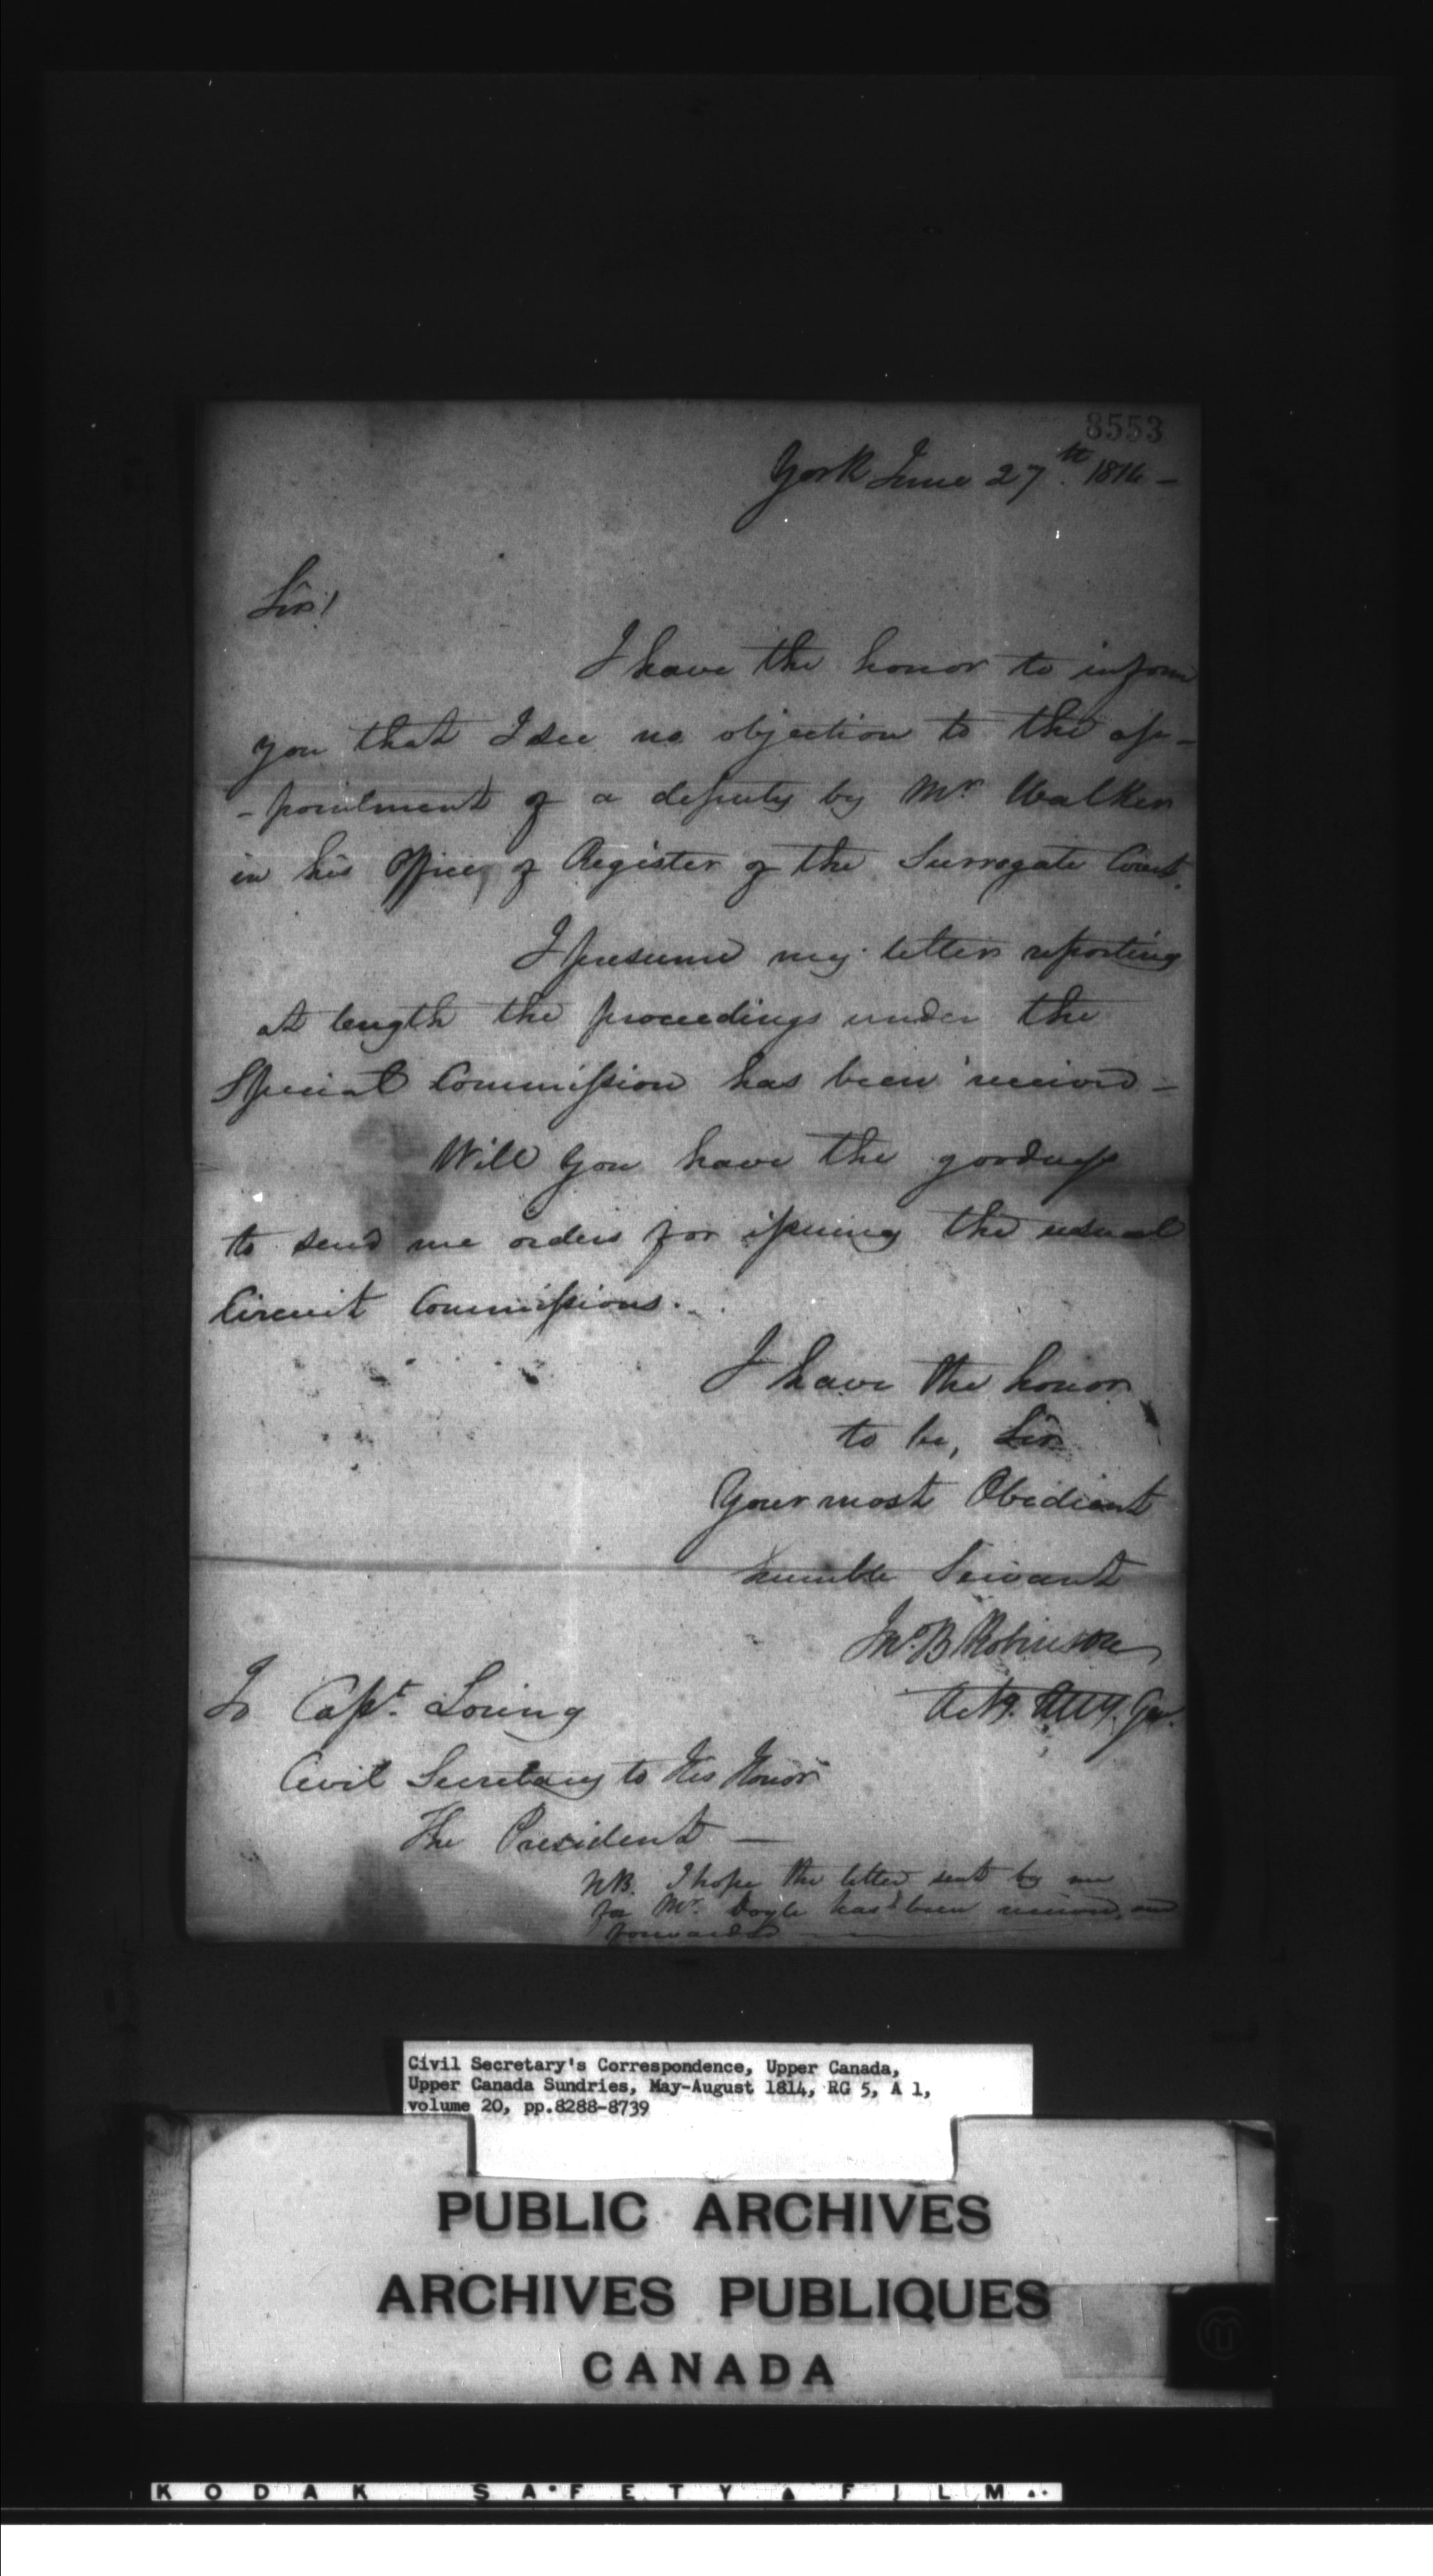 8553
York June 27th. 1814 –
Sir!
I have the honor to inform
you that I see no objection to the ap-
-pointment of a deputy by Mr Walker
in his Office, of Register of the Surrogate Court.
I presume my letter reporting
at length the proceedings under the
Special Commission has been received –
Will you have the goodness
to send me orders for issuing the usual
Circuit Commissions.
I have the honor
to be, Sir
Your most Obedient
humble Servant
Jno. B Robinson
Actg. Atty. Gen.
To Capt. Loring
Civil Secretary to His Honor
The President —
NB. I hope the letter sent by me
for Mr. Doyle has been received, and
forwarded —
Civil Secretary's Correspondence, Upper Canada,
Upper Canada Sundries, May-August 1814, RG 5, A 1,
volume 20, pp.8288-8739
PUBLIC ARCHIVES
ARCHIVES PUBLIQUES
CANADA
KODAK SAFETY FILM